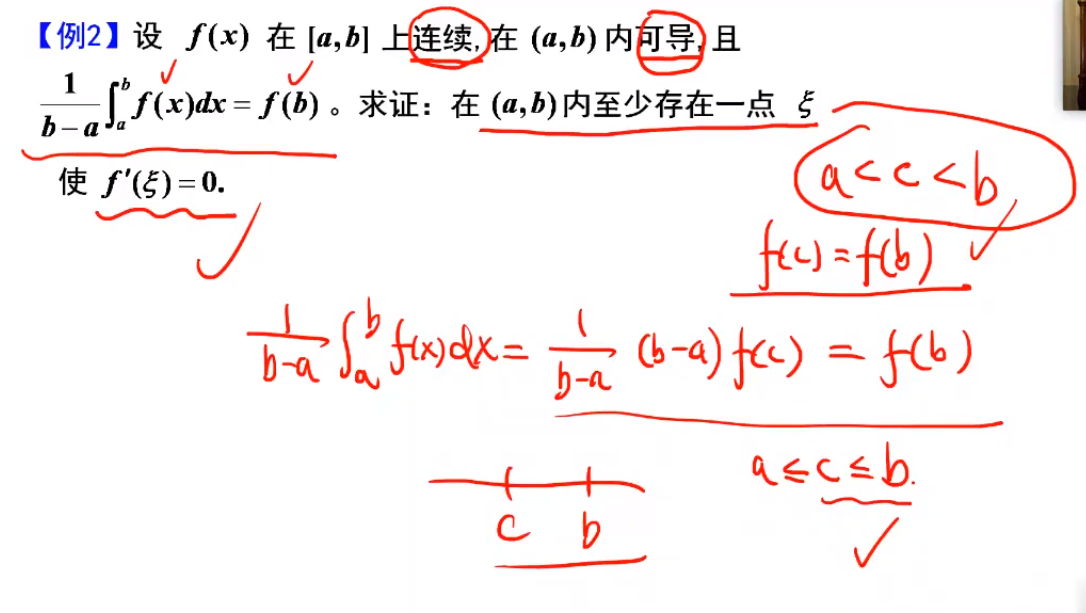 【例2】设 f(x) 在 [a,b] 上连续,在 (a,b) 内可导,且
1/(b−a) ∫_a^b f(x)dx = f(b) 。求证：在 (a,b)内至少存在一点 ξ
使 f′(ξ)=0.
a<c<b
f(c)=f(b)
1/(b-a) ∫_a^b f(x)dx = 1/(b-a) (b-a) f(c) = f(b)
a≤c≤b.
c b